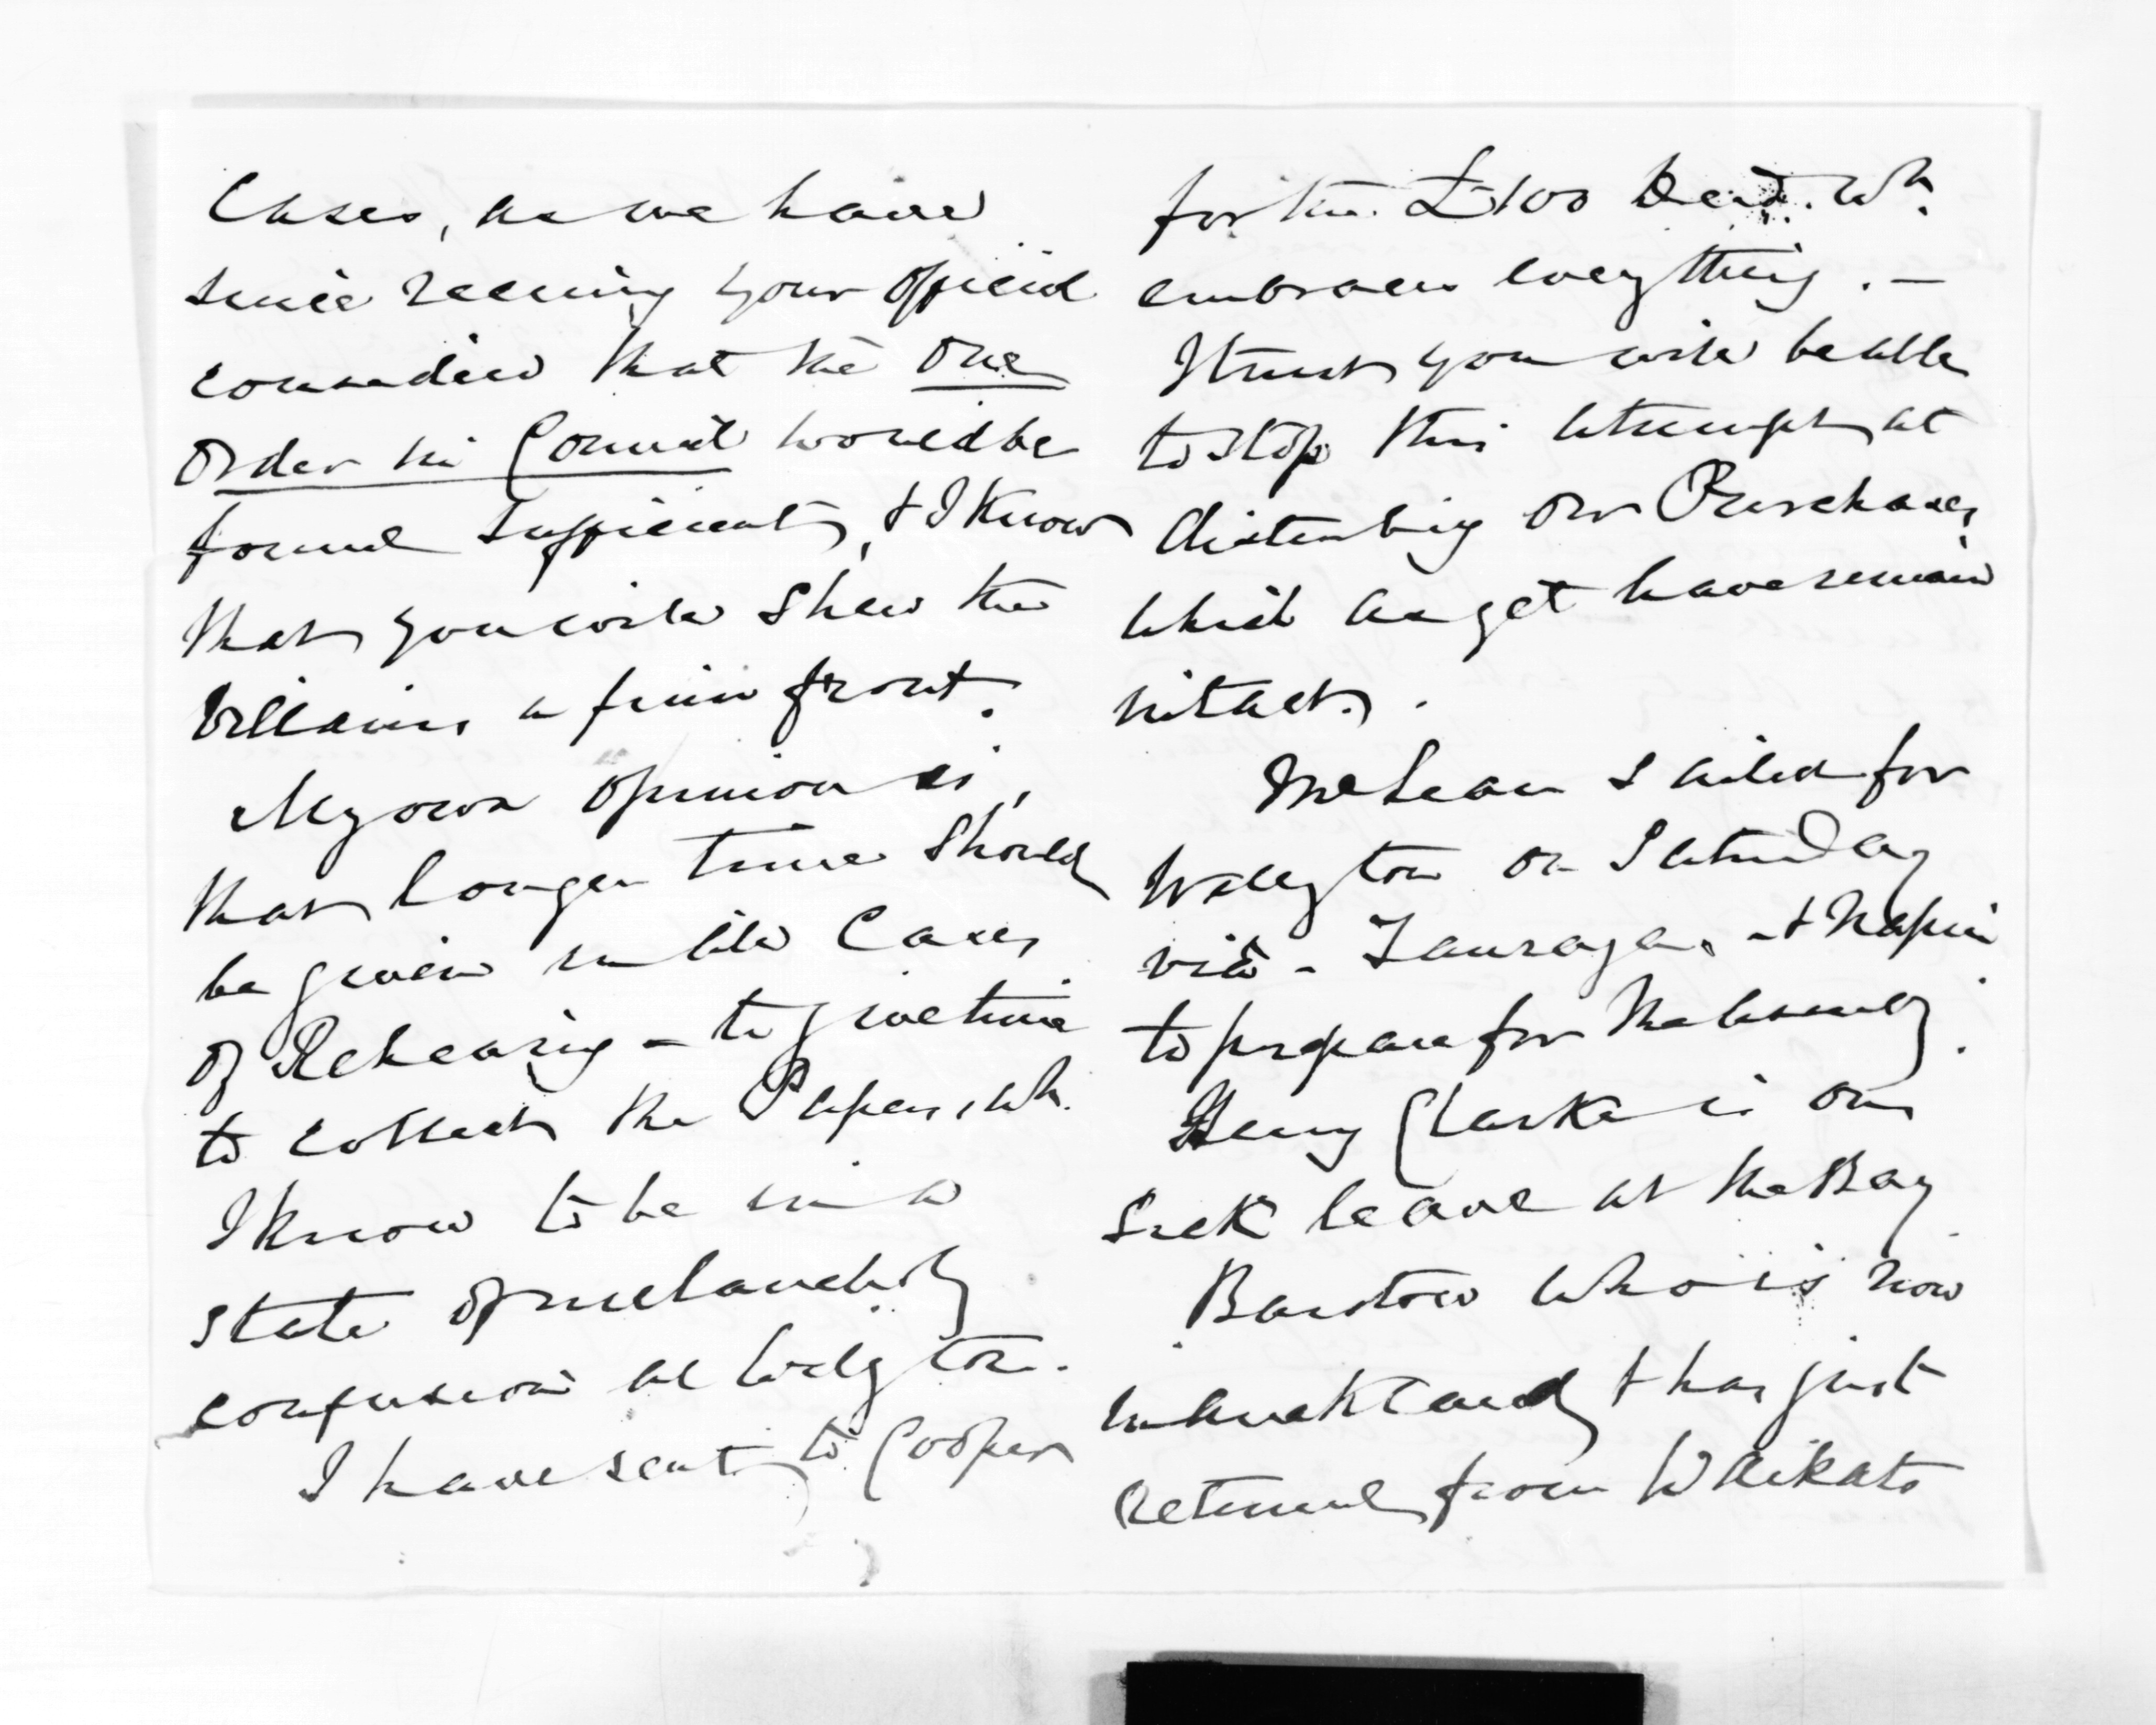 Cases, as we have
since receiving your official
considered that the one
Order in Council would be
found sufficient, & I know
that you will shew the
villains a firm front.
My own opinion is,
that longer time should
be given in all Cases
of Rehearing - to give time
to collect the Papers, wh.
I know to be in a
state of melancholy
confusion at Welgton.
I have sent to Cooper
for the £100 Deed. wh.
embraces everything. -
I trust you will be able
to stop this attempt at
disturbing our Purchases,
which as yet have remain
intact.
McLean sailed for
Wellgton on Saturday
via - Tauranga. - & Napier
to prepare for the Assembly.
Henry Clarke is on
sick leave at the Bay
Barstow who is now
in Auckland, & has just
returned from Waikato